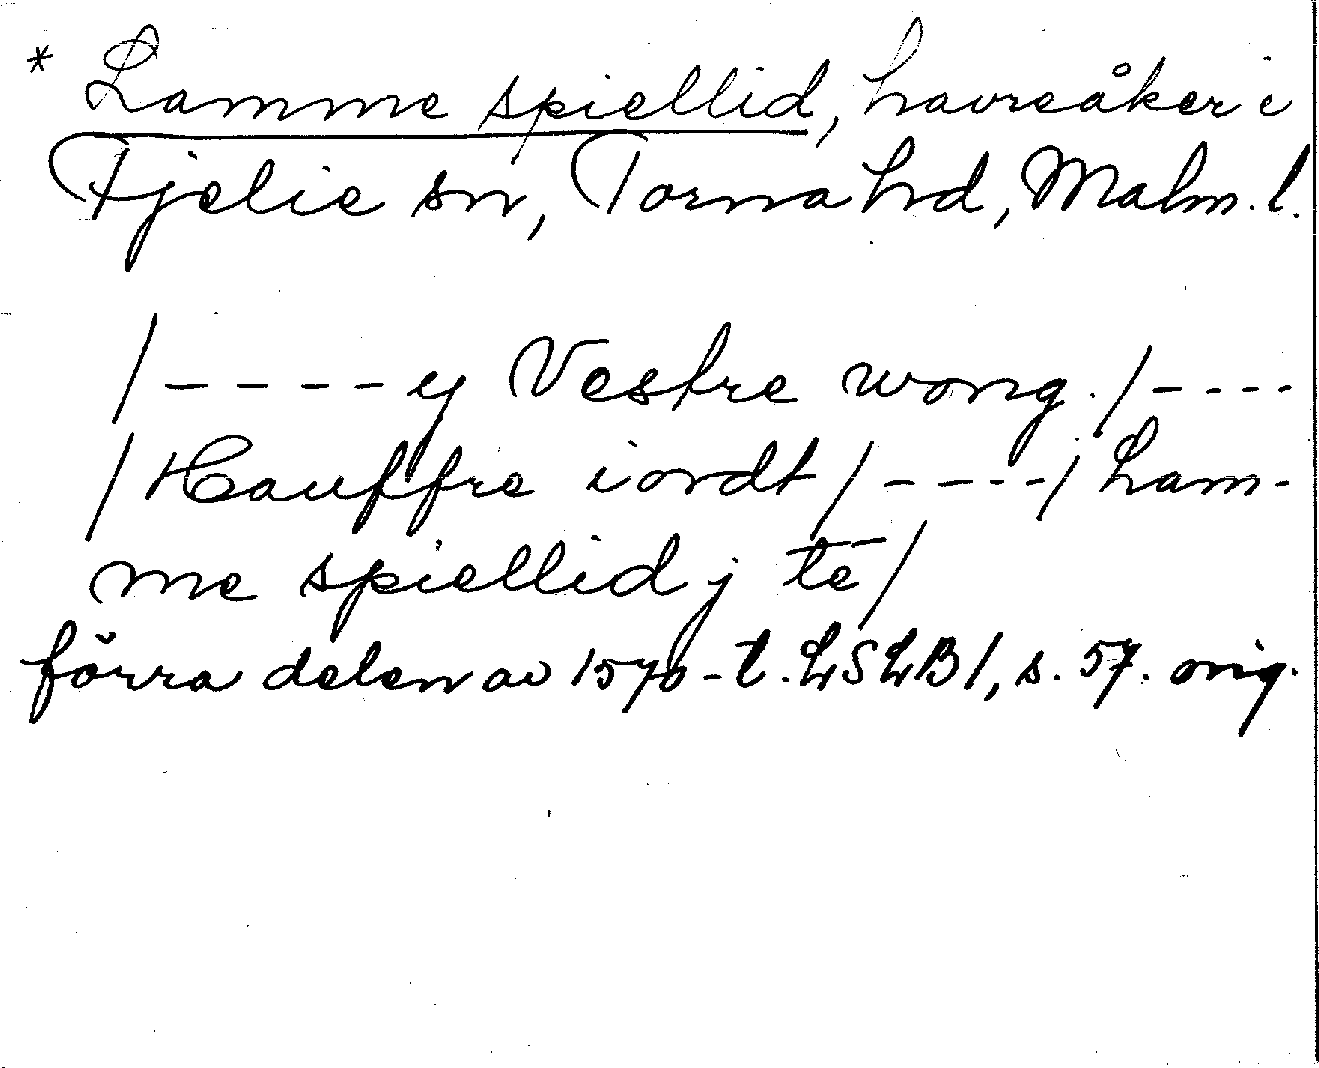 * Lamme spiellid, havreåker i
Fjelie sn, Torna hd, Malm. l.
/ - - - - y Vestre wong. / - - - -
/ Hauffre iordt / - - - - / Lam-
me spiellid j tē /
förra delen av 1570-t. LSLB 1, s. 57. orig.